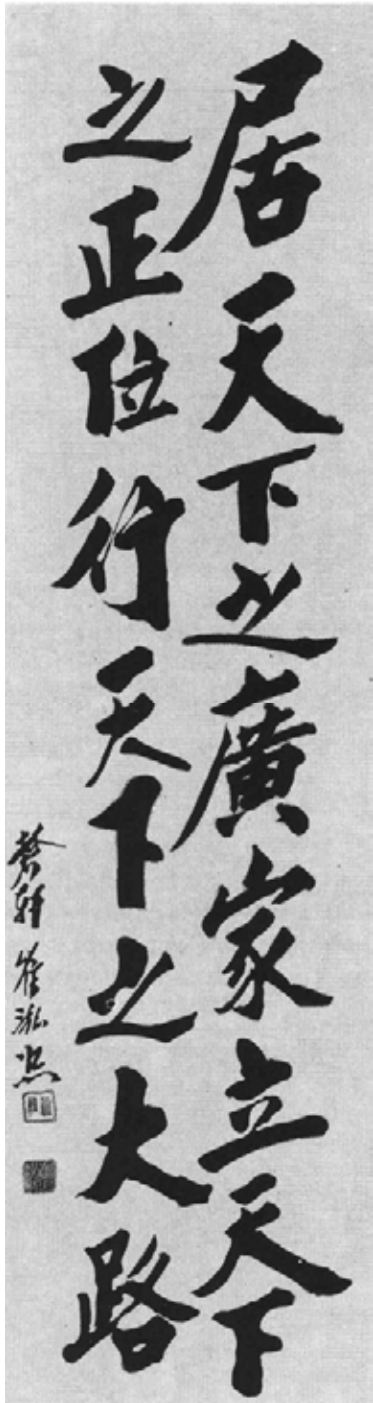 居天下之廣家立天下
之正位行天下之大路
軒 崔